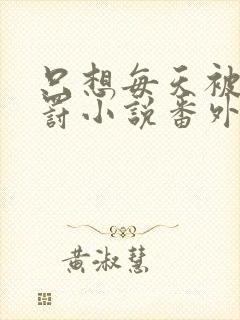 只想每天被
罚小說番外
黃淑慧